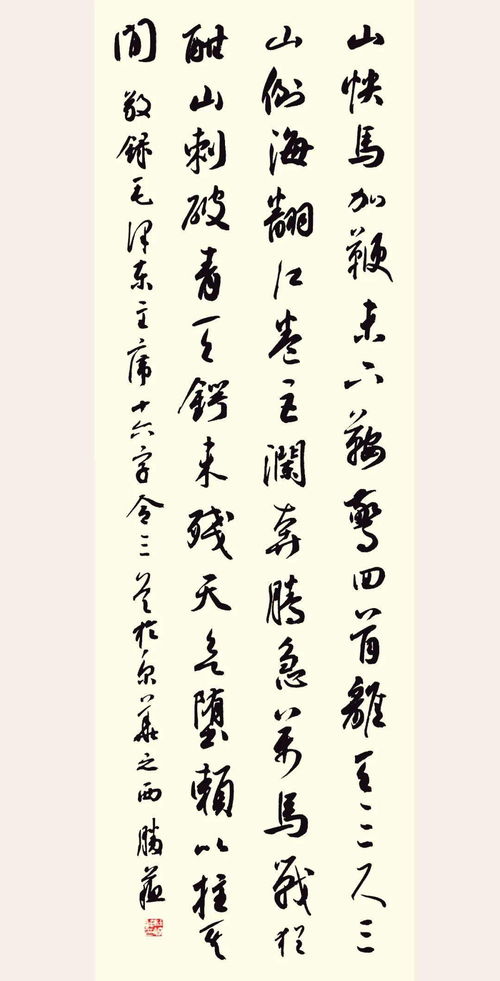 山快馬加鞭未下鞍驚回首離天三尺三
山倒海翻江卷巨瀾奔騰急萬馬戰猶
酣山刺破青天鍔未殘天欲墮賴以拄其
間
敬録毛澤東主席十六字令三首於京華之西勝